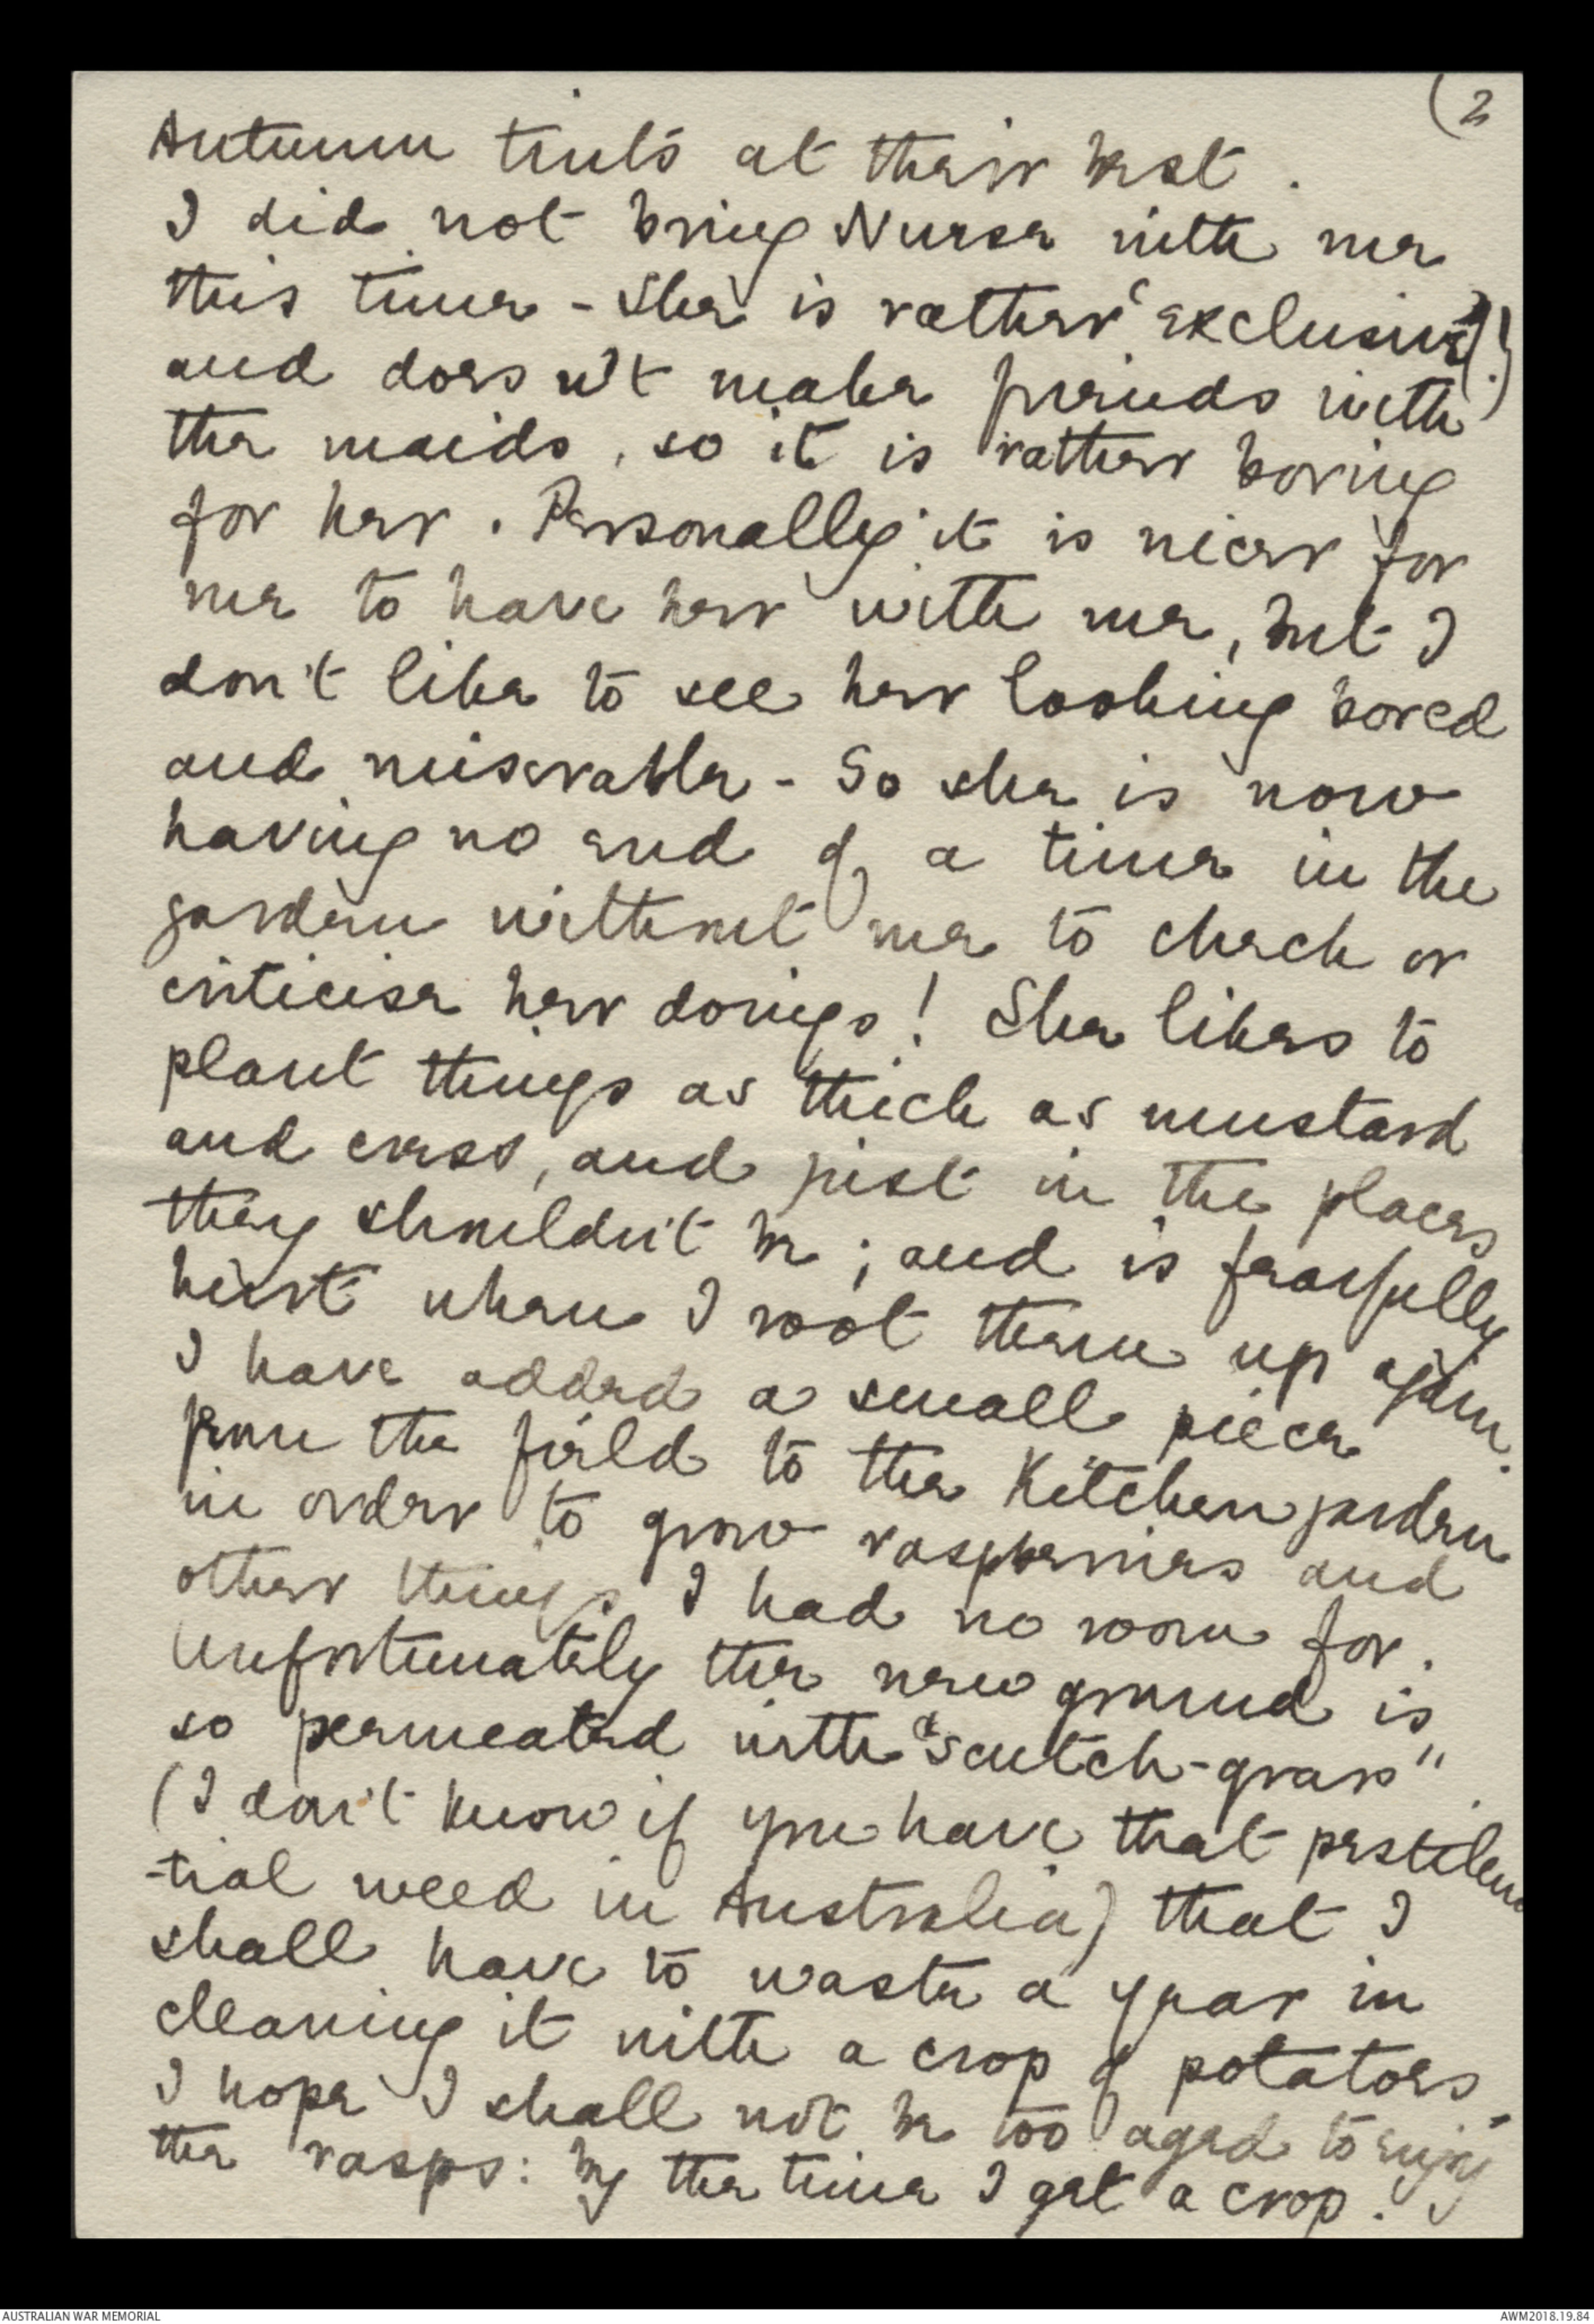 (2
Autumn tints at their best.
I did not bring Nurse with me
this time - She is rather 'exclusive' (!)
and does n't make friends with
the maids, so it is rather boring
for her. Personally it is nicer for
me to have her with me, but I
don't like to see her looking bored
and miserable - So she is now
having no end of a time in the
garden without me to check or
criticise her doings! She likes to
plant things as thick as mustard
and cress, and just in the places
they shouldn't be; and is fearfully
hurt when I root them up again.
I have added a small piece
from the field to the Kitchen garden
in order to grow raspberries and
other things I had no room for.
Unfortunately the new ground is
so permeated with "scutch-grass"
(I don't know if you have that pestilen
-tial weed in Australia) that I
shall have to waste a year in
cleaning it with a crop of potatoes.
I hope I shall not be too aged to enjoy
the rasps: by the time I get a crop.
AUSTRALIAN WAR MEMORIAL
AWM2018.19.84